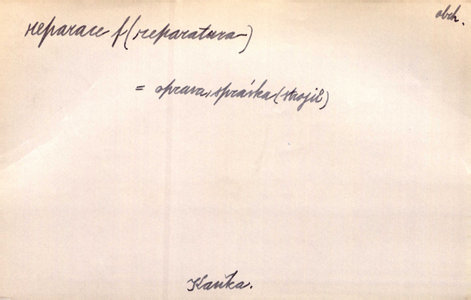 obch.
reparace f (reparatura)
= oprava, správka (strojů)
Kaňka.